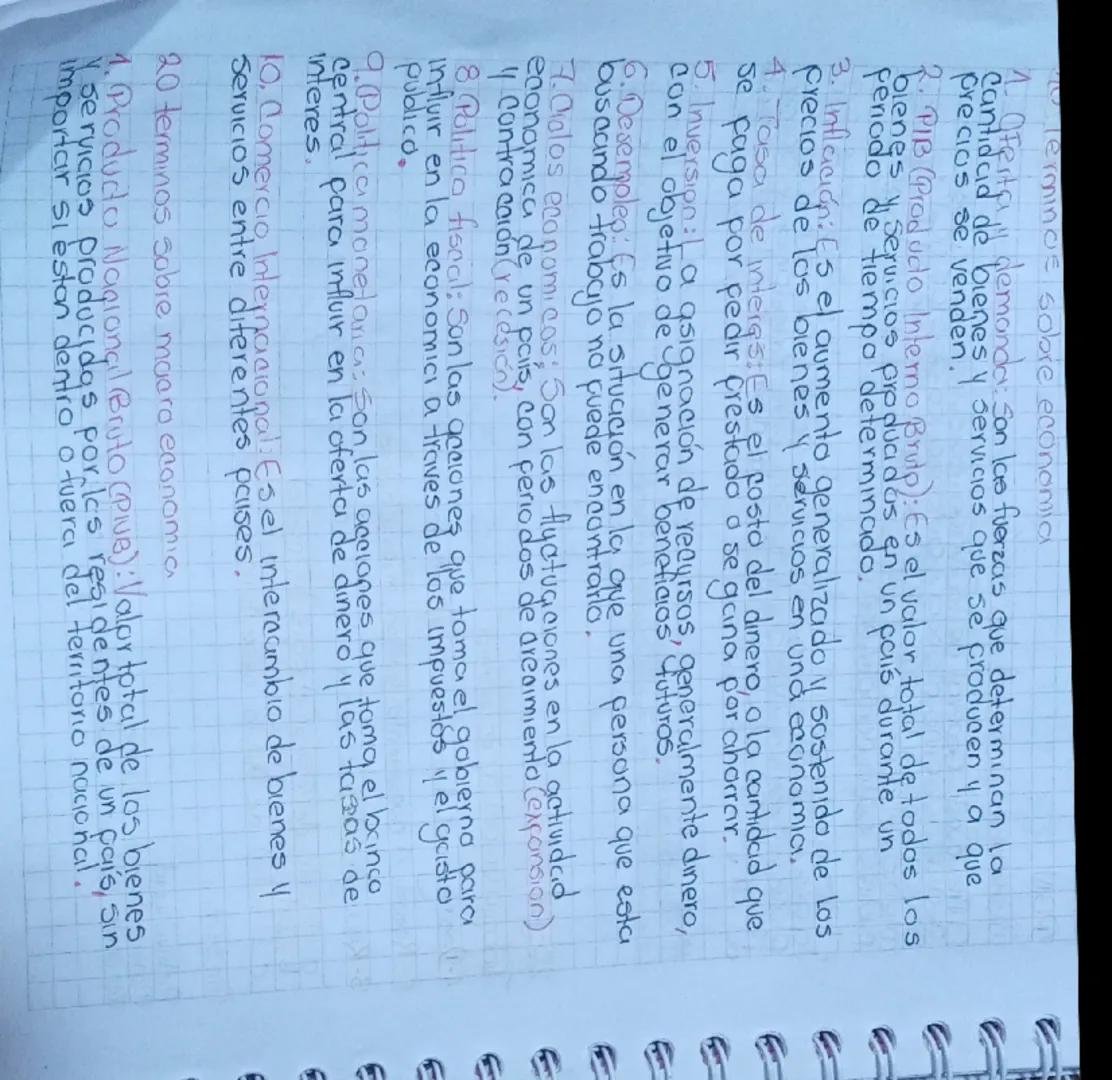 10 Terminos sobre economia
1. Oferta y demanda: Son las fuerzas que determinan la
cantidad de bienes y servicios que se producen y a que
precios se venden.
2. PIB (Producto Interno Bruto): Es el valor total de todos los
bienes y servicios producidos en un país durante un
periodo de tiempo determinado.
3. Inflación: Es el aumento generalizado y sostenido de los
precios de los bienes y servicios en una economia.
4. Tasa de interes: Es el costo del dinero, o la cantidad que
se paga por pedir prestado o se gana por ahorrar.
5. Inversion: La asignación de recursos, generalmente dinero,
con el objetivo de generar beneficios, futuros.
6. Desempleo: Es la situación en la que una persona que esta
buscando trabajo no puede encontrarlo.
7. Ciclos economicos: Son las fluctuaciones en la actividad
economica de un país, con periodos de crecimiento (expansion)
y contracción (recesión).
8. Politica fiscal: Son las acciones que toma el gobierno para
influir en la economia a traves de los impuestos y el gasto
publico.
9. Politica monetaria: Son las acciones que toma el banco
central para influir en la oferta de dinero y las tasas de
interes.
10. Comercio Internacional: Es el intercambio de bienes y
servicios entre diferentes paises.
20 terminos sobre macro economia
1. Producto Nacional Bruto (PNB): Valor total de los bienes
y servicios producidas por los residentes de un país, sin
importar si estan dentro o fuera del territorio nacional.